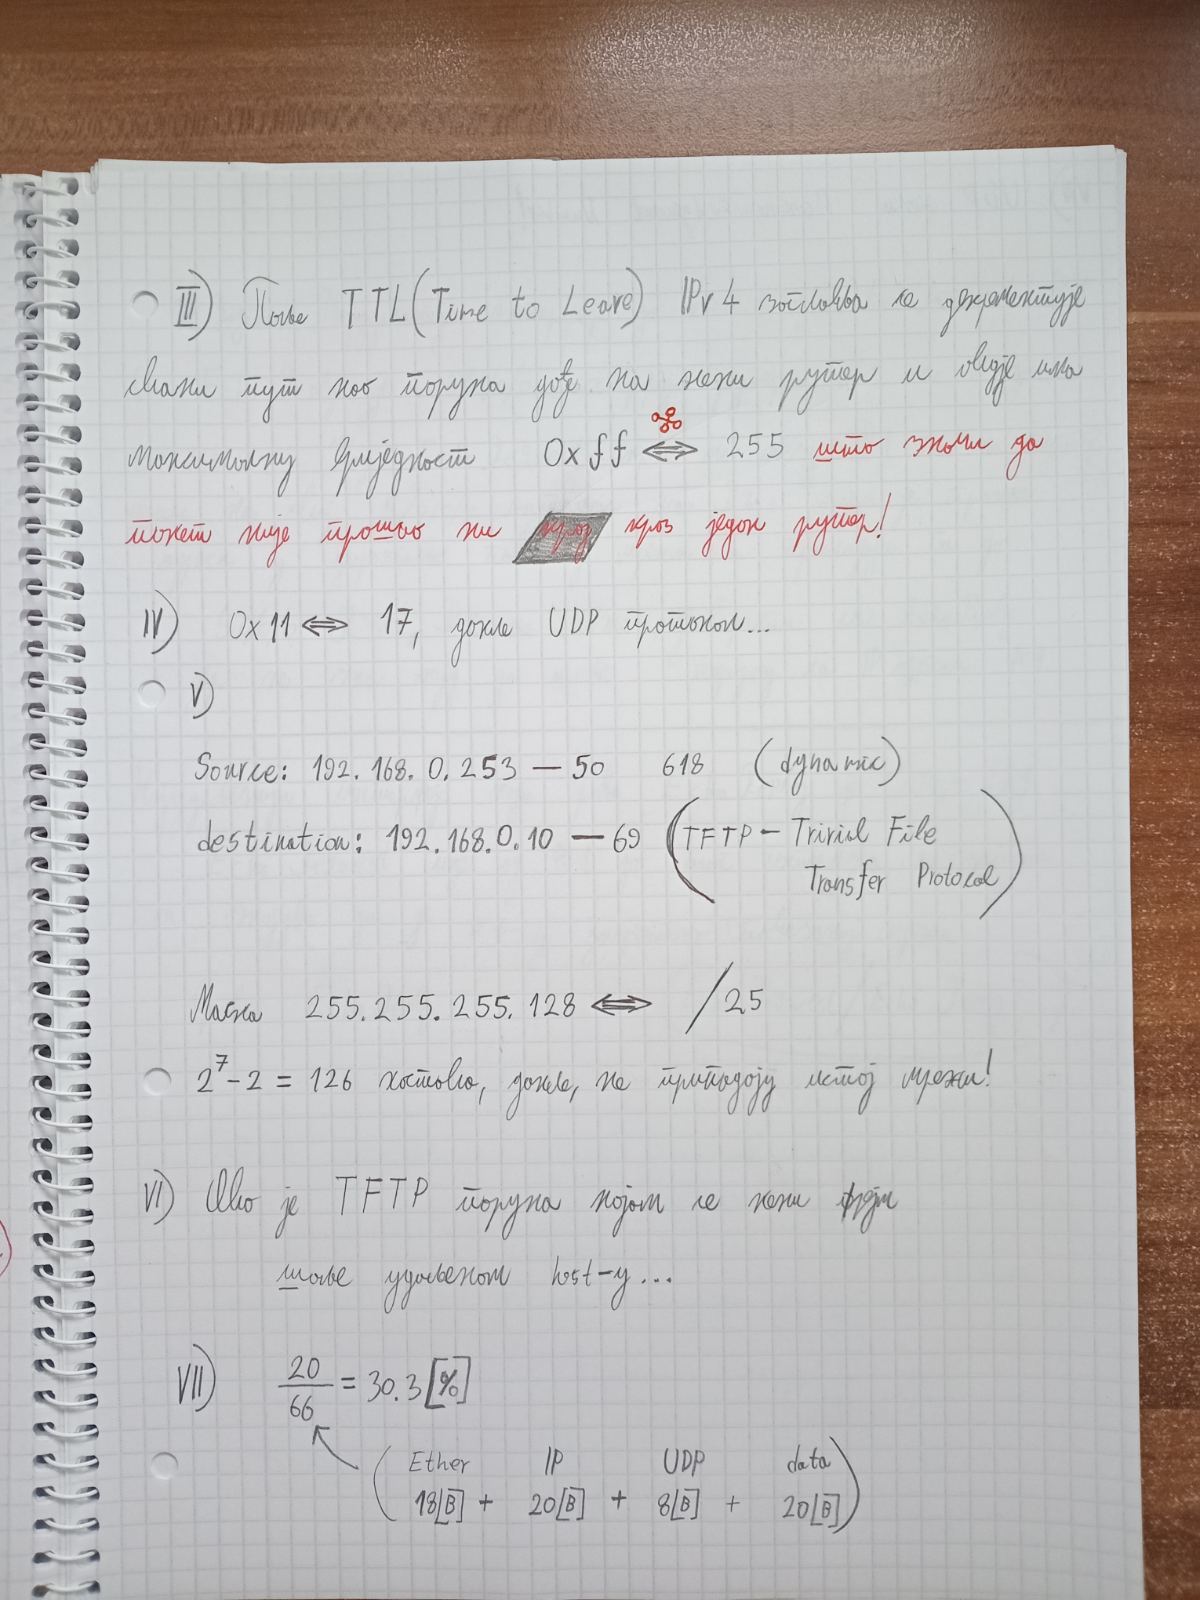 III) Поље TTL (Time to Leave) IPv4 заглавља се декрементује
сваки пут кад порука дође на неки рутер и овдје има
максималну вриједност 0xff ⇔ 255 што значи да
пакет није прошао ни кроз кроз један рутер!
IV) 0x11 ⇔ 17, дакле UDP протокол...
V)
Source: 192.168.0.253 — 50 618 (dynamic)
destination: 192.168.0.10 — 69 (TFTP — Trivial File
Transfer Protocol)
Маска 255.255.255.128 ⇔ /25
2^7 - 2 = 126 хостова, дакле, не припадају истој мрежи!
VI) Ово је TFTP порука којом се неки фајл
шаље удаљеном host-у...
VII) 20/66 = 30.3 [%]
(Ether IP UDP data
18[B] + 20[B] + 8[B] + 20[B])